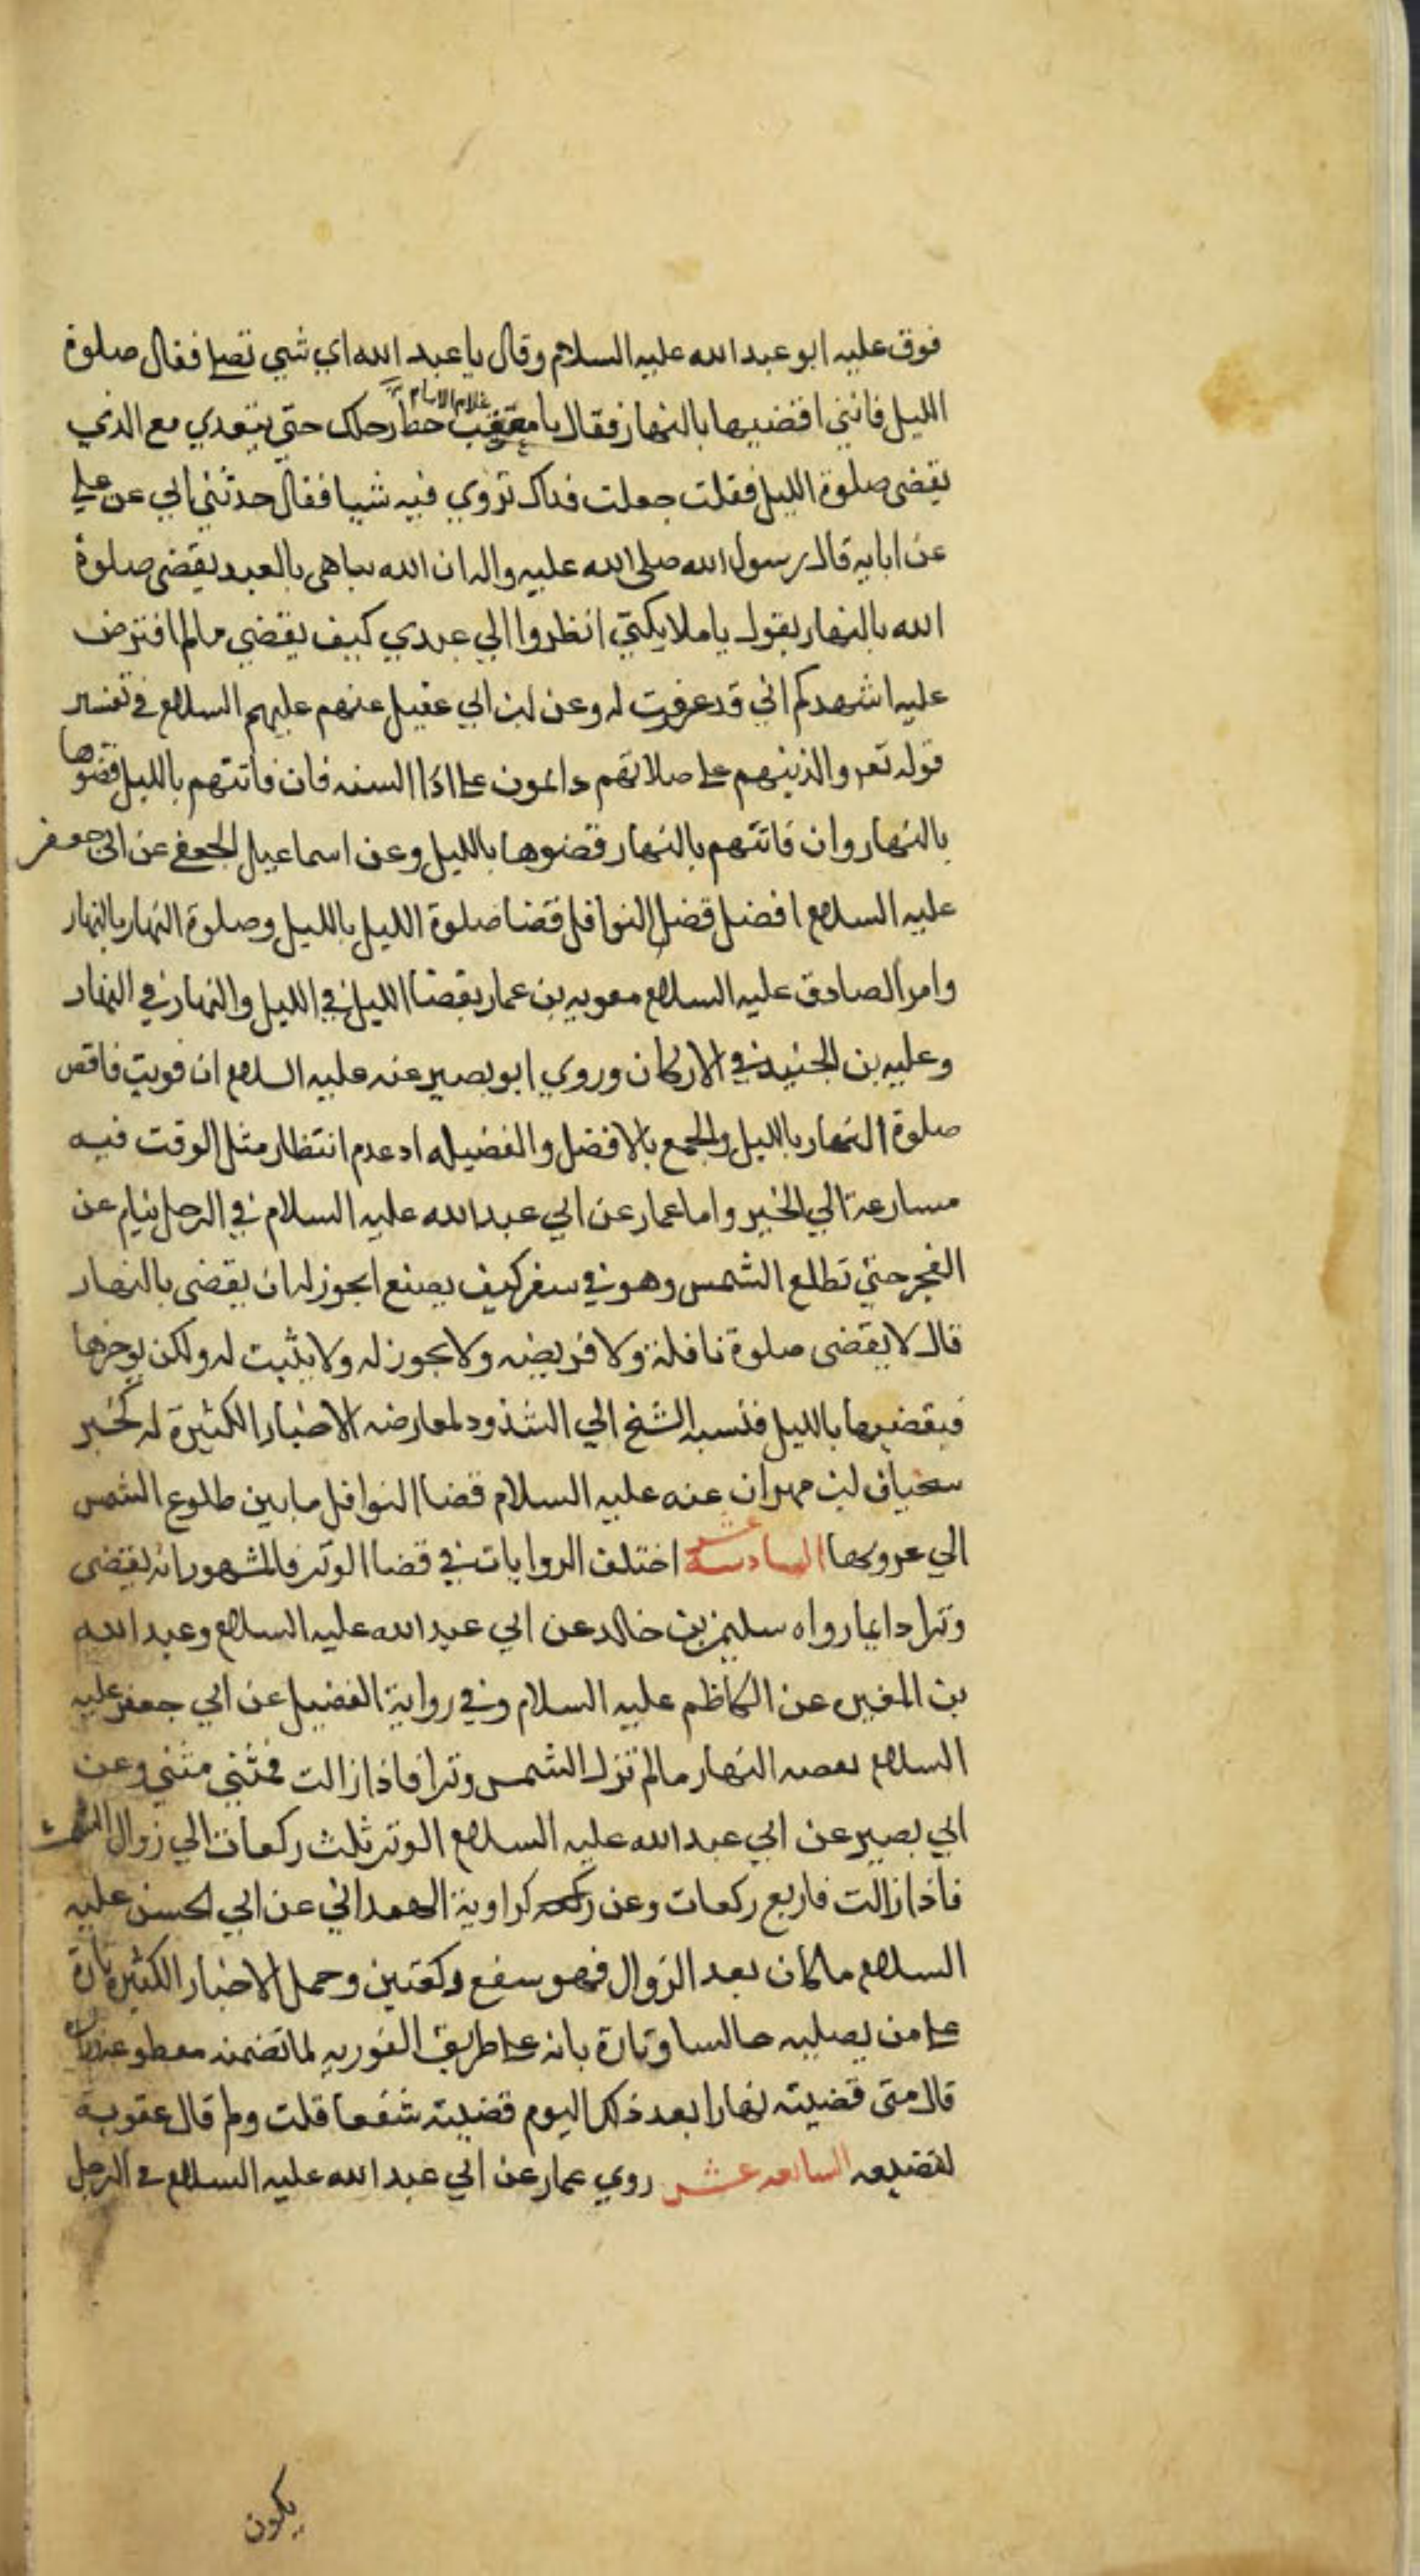 فوق عليه ابو عبد الله عليه السلام وقال يا عبد الله اي شي تصلي فقال صلوة
الليل فانني اقضيها بالنهار فقال يا معتب حط رحلك حتى يتغدي مع الذي
غلام الامام
يقضى صلوة الليل فقلت جعلت فداك تروي فيه شيا فقال حدثني ابي عن علي
عن ابايه قال رسول الله صلى الله عليه واله ان الله يباهى بالعبد يقضى صلوة
الله بالنهار يقول يا ملايكتي انظروا الي عبدي كيف يقضي مالم افترض
عليه اشهدكم اني قد غفرت له وعن ابن ابي عقيل عنهم عليهم السلام في تفسير
قوله تعر والذينهم علي صلاتهم دايمون علي اذا السنه فان فاتتهم بالليل قضوها
بالنهار وان فاتتهم بالنهار قضوها بالليل وعن اسماعيل الجعفي عن ابي جعفر
عليه السلام افضل قضا النوافل قضا صلوة الليل بالليل وصلوة النهار بالنهار
وامر الصادق عليه السلام معويه بن عمار بقضا الليل في الليل والنهار في النهار
وعليه بن الجنيد في الاركان وروي ابو بصير عنه عليه السلام ان قويت فاقض
صلوة النهار بالليل والجمع بالافضل والفضيله اد عدم انتظار مثل الوقت فيه
مسارعة الي الخير واما عمار عن ابي عبد الله عليه السلام في الرجل ينام عن
الفجر حتي تطلع الشمس وهو في سفر كيف يصنع ايجوز له ان يقضى بالنهار
قال لا يقضى صلوة نافلة ولا فريضه ولا يجوز له ولا يثبت له ولكن يوخرها
فيقضيها بالليل فنسبه الشيخ الي الشذوذ لمعارضه الاخبار الكثيرة له كخبر
ابن مهران عنه عليه السلام قضا النوافل ما بين طلوع الشمس
الي غروبها السادسة عشر اختلف الروايات في قضا الوتر فالمشهور انه يقضى
وترا دايما رواه سليمن بن خالد عن ابي عبد الله عليه السلام وعبد الله
بن المغيره عن الكاظم عليه السلام وفي رواية الفضيل عن ابي جعفر عليه
السلام يقضيه النهار مالم تزل الشمس وترا فاذا زالت فمثني مثني وعن
ابي بصير عن ابي عبد الله عليه السلام الوتر ثلث ركعات الي زوال الشمس
فاذا زالت فاربع ركعات وعن كراوية الهمداني عن ابي الحسن عليه
السلام ما كان بعد الزوال فهو شفع ركعتين وحمل الاخبار الكثيره تارة
علي من يصليه جالسا وتارة بانه علي طريق الفوريه لما تضمنه
قال متى قضيته نهارا بعد ذلك اليوم قضيته شفعا قلت ولم قال عقوبة
لتضيعه السابعه عشر روي عمار عن ابي عبد الله عليه السلام في الرجل
يكون